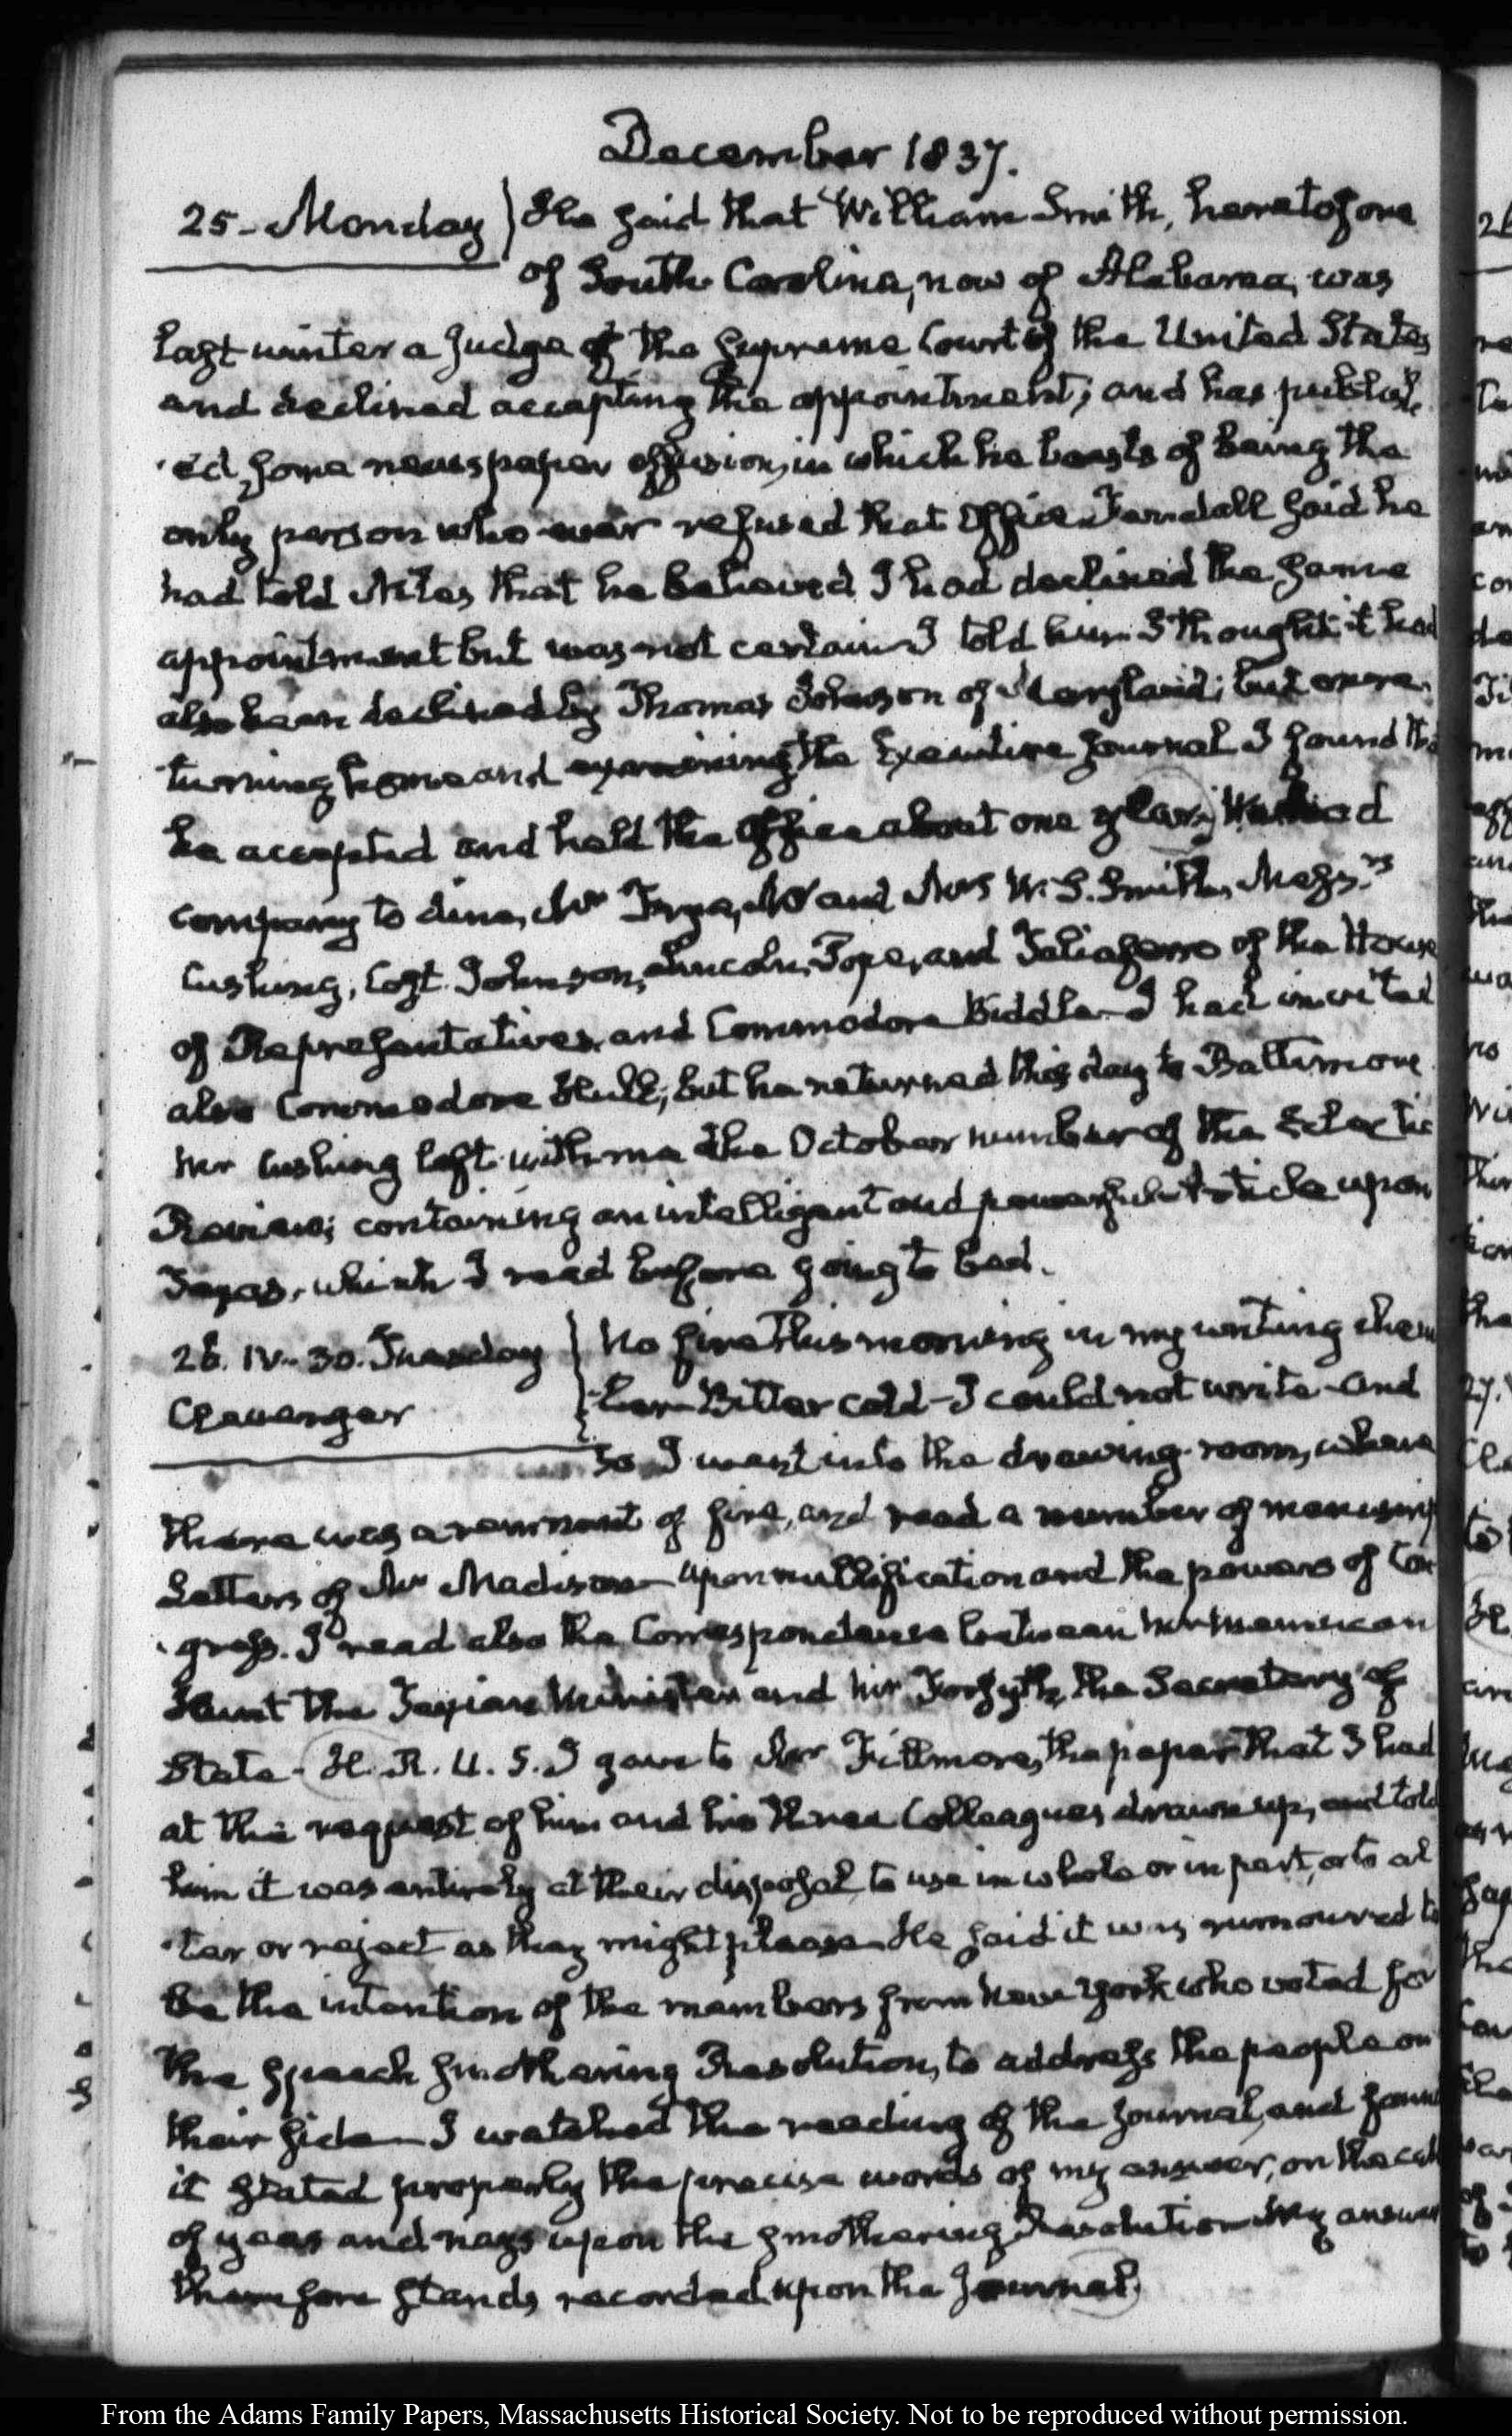 December 1837.
25. Monday } He said that William Smith, heretofore
of South Carolina, now of Alabama, was
last winter a Judge of the Supreme Court of the United States
and declined accepting the appointment; and has publish
ed some newspaper effusion, in which he boasts of being the
only person who ever refused that Office. Tendall said he
had told Niles that he believed I had declined the same
appointment but was not certain. I told him I thought it had
also been declined by Thomas Johnson of Maryland; but on re
turning home and examining the Executive Journal I found that
he accepted and held the Office about one year. We had
company to dine, Mr Frye, Mr and Mrs W. S. Smith, Messrs
Cushing, Cost Johnson, Lincoln, Pope, and Taliaferro of the House
of Representatives, and Commodore Biddle. I had invited
also Commodore Hull, but he returned this day to Baltimore
Mr Cushing left with me the October number of the Eclectic
Review; containing an intelligent and powerful article upon
Texas, which I read before going to bed.
26. IV. 30. Tuesday } No fire this morning in my writing cham
Clavenger } ber. Bitter cold. I could not write and
so I went into the drawing-room, where
there was a remnant of fire, and read a number of manuscript
Letters of Mr Madison upon nullification and the powers of Con
gress. I read also the Correspondence between Mr Memucan
Hunt the Texian Minister and Mr Forsyth, the Secretary of
State. H. R. U. S. I gave to Mr Fillmore, the paper that I had
at the request of him and his three Colleagues drawn up, and told
him it was entirely at their disposal, to use in whole or in part, or to al
ter or reject as they might please. He said it was rumoured to
be the intention of the members from New York who voted for
the speech smothering Resolution, to address the people on
their side. I watched the reading of the Journal, and found
it stated properly the precise words of my answer, on the call
of yeas and nays upon the smothering Resolution. My answer
therefore stands recorded upon the Journal.
From the Adams Family Papers, Massachusetts Historical Society. Not to be reproduced without permission.